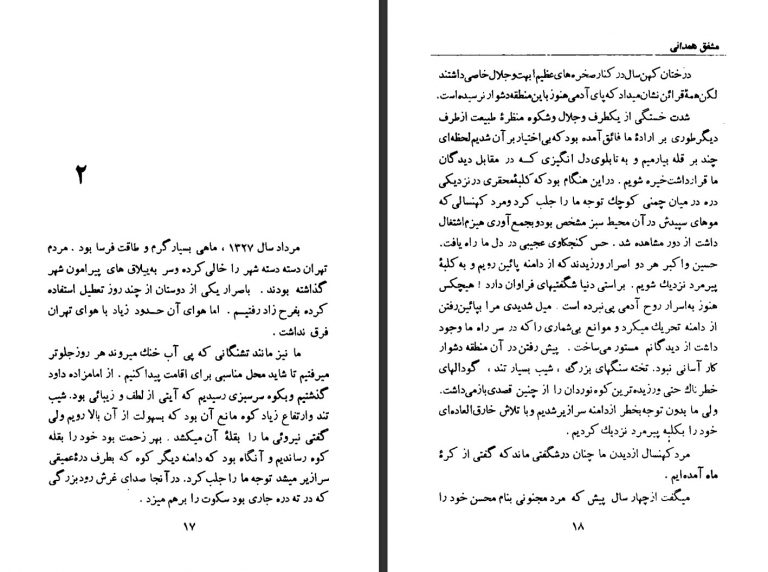 ۲
مرداد سال ۱۳۲۷ ، ماهی بسیار گرم و طاقت فرسا بود . مردم
تهران دسته دسته شهر را خالی کرده وسر به ییلاق های پیرامون شهر
گذاشته بودند . باصرار یکی از دوستان از چند روز تعطیل استفاده
کرده بفرح زاد رفتیم . اما هوای آن حدود زیاد با هوای تهران
فرق نداشت .
ما نیز مانند تشنگانی که پی آب خنك میروند هر روز جلوتر
میرفتیم تا شاید محل مناسبی برای اقامت پیدا کنیم . از امامزاده داود
گذشتیم وبکوه سرسبزی رسیدیم که آیتی از لطف و زیبائی بود. شیب
تند وارتفاع زیاد کوه مانع آن بود که بسهولت از آن بالا رویم ولی
گفتی نیروئی ما را بقلهٔ آن میکشد . بهر زحمت بود خود را بقله
کوه رساندیم و آنگاه بود که دامنه دیگر کوه که بطرف درهٔ عمیقی
سرازیر میشد توجه ما را جلب کرد. در آنجا صدای غرش رود بزرگی
که در ته دره جاری بود سکوت را برهم میزد .
۱۷
مشفق همدانی
درختان کهن سال در کنار صخره های عظیم ابهت و جلال خاصی داشتند
لکن همهٔ قرائن نشان میداد که پای آدمی هنوز باین منطقه دشوار نرسیده است.
شدت خستگی از یکطرف وجلال وشکوه منظرهٔ طبیعت از طرف
دیگر طوری بر ارادهٔ ما فائق آمده بود که بی اختیار بر آن شدیم لحظه ای
چند بر قله بیارمیم و به تابلوی دل انگیزی کـه در مقابل دیدگان
ما قرار داشت خیره شویم . در این هنگام بود که کلبهٔ محقری در نزدیکی
دره در میان چمنی کوچك توجه ما را جلب کرد ومرد کهنسالی که
موهای سپیدش در آن محیط سبز مشخص بود و بجمع آوری هیزم اشتغال
داشت از دور مشاهده شد . حس کنجکاوی عجیبی در دل ما راه یافت.
حسین و اکبر هر دو اصرار ورزیدند که از دامنه پائین رویم و به کلبهٔ
پیرمرد نزدیك شویم . براستی دنیا شگفتیهای فراوان دارد ! هیچکس
هنوز به اسرار روح آدمی پی نبرده است . میل شدیدی مرا بپائین رفتن
از دامنه تحریك میکرد و موانع بی شماری را که در سر راه ما وجود
داشت از دیدگانم مستور می ساخت . پیش رفتن در آن منطقه دشوار
کار آسانی نبود. تخته سنگهای بزرگ ، شیب بسیار تند ، گودالهای
خطرناك حتی ورزیده ترین کوه نوردان را از چنین قصدی باز می داشت.
ولی ما بدون توجه بخطر از دامنه سرازیر شدیم و با تلاش خارق العاده ای
خود را بکلبه پیرمرد نزدیك کردیم .
مرد کهنسال از دیدن ما چنان در شگفتی ماند که گفتی از کرهٔ
ماه آمده ایم .
میگفت از چهار سال پیش که مرد مجنونی بنام محسن خود را
۱۸